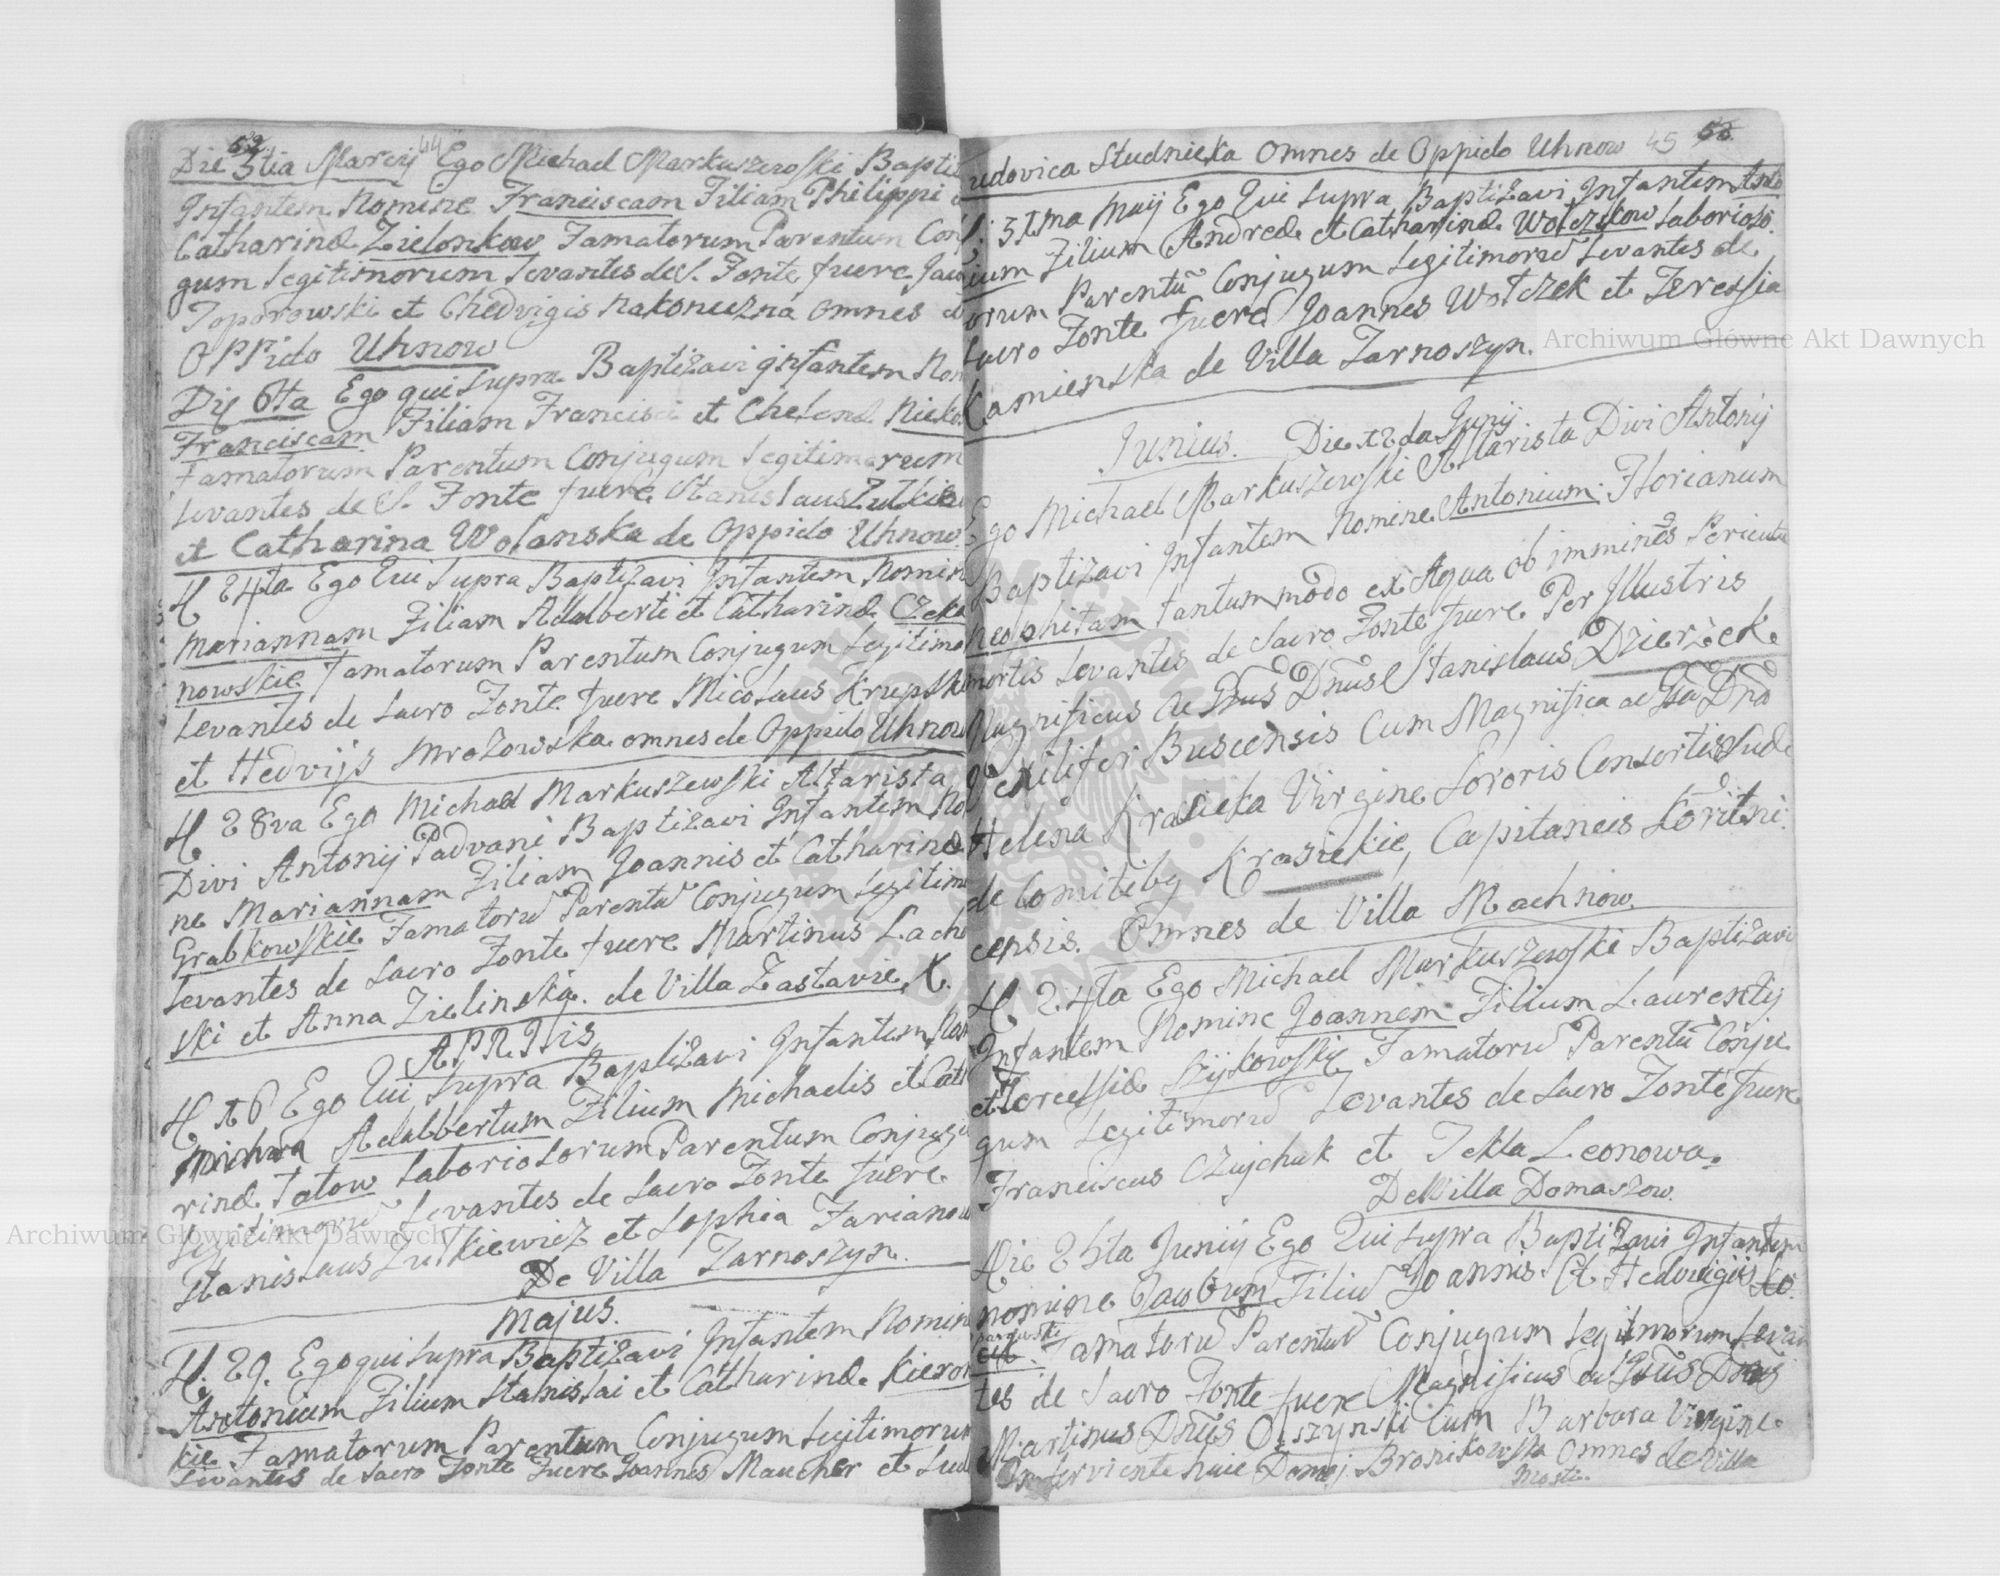 52 44
Die 3tia Marcij Ego Michael Markuszewski Bapti
Infantem Nomine Franciscam Filiam Philippi
Catharinæ Zielonkow Famatorum Parentum Con
gum Legitimorum Levantes de S. Fonte fuere
Toporowski et Chedvigis Nakonieczna omnes
Oppido Uhnow
Die 6ta Ego qui supra Baptizavi infantem Nom
Franciscam Filiam Francisci et Nieko
Famatorum Parentum Conjugum Legitimorum
Levantes de S. Fonte fuere Stanislaus
et Catharina Wolanska de Oppido Uhnow
H 24ta Ego Qui Supra Baptizavi Infantem Nomin
Mariannam Filiam Adalberti et Catharinæ
nowskie Famatorum Parentum Conjugum Legitimo
Levantes de Sacro Fonte fuere Nicolaus Krupski
et Hedvijs Mrozowska omnes de Oppido Uhnow
H 28va Ego Michael Markuszewski Altarista
Divi Antonij Padvani Baptizavi Infantem No
ne Mariannam Filiam Joannis et Catharinæ
Grabkowskie Famatorū Parentū Conjugum Legitim
Levantes de Sacro Fonte fuere Martinus Lacho
ski et Anna Zielinska. de Villa Zastavie
APRIlis
H 16 Ego Qui supra Baptizavi Infantem Nom
Adalbertum Filium Michaelis et Cath
rinæ Tatow Laboriosorum Parentum Conjugu
Legitimorū Levantes de Sacro Fonte fuere
Stanislaus Zulkiewicz et Sophia
De Villa Tarnoszyn.
Majus.
H. 29. Ego qui supra Baptizavi Infantem Nomin
Antonium Filium Stanislai et Catharinæ
kie Famatorum Parentum Conjugum Legitimorum
Levantes de Sacro Fonte fuere Joannes Maucher et Lud
udovica Studnicka Omnes de Oppido Uhnow 45 53
31ma Maij Ego Qui supra Baptizavi Infantem Anto
nium Filium Andreæ et Catharinæ Wołczkow Laborioso
orum Parentū Conjugum Legitimorū Levantes de
Sacro Fonte fuere Joannes Wołczek et Teressia
Kamienska de Villa Tarnoszyn.
Junius. Die 12da Junij
Ego Michael Markuszewski Altarista Divi Antonij
Baptizavi Infantem Nomine Antonium Florianum
Neophitam tantummodo ex Aqua ob imminēs Pericul
mortis Levantes de Sacro Fonte fuere Per Illustris
Magnificus ac Gsus Dnus Stanislaus Dzierżek
Vexilifer Buscensis Cum Magnifica ac Gsa Dna
Helena Krasicka Virgine Sororis Consortis Suæ
de Comitibg Krasickie, Capitaneis
censis. Omnes de Villa Machnow.
H 24ta Ego Michael Markuszewski Baptizavi
Infantem Nomine Joannem Filium Laurentij
et Teressiæ Szijkowskie Famatorū Parentū Conju
gum Legitimorū Levantes de Sacro Fonte fuere
Franciscus Czujchuk et Tekla Leonowa.
De Villa Domaszow.
Die 25ta Junij Ego Qui supra Baptizavi Infantem
nomine Jacobum Filiū Joannis Et Hedvigis
Famatorū Parentū Conjugum Legitimorum Levan
tes de Sacro Fonte fuere Magnificus ac Gsus Dnus
Martinus Dnus Olszynski Cum Barbara Virgine
Inserviente huic Domij. Bronikowska Omnes de Villa
Mosti.
Archiwum Główne Akt Dawnych
Archiwum Główne Akt Dawnych